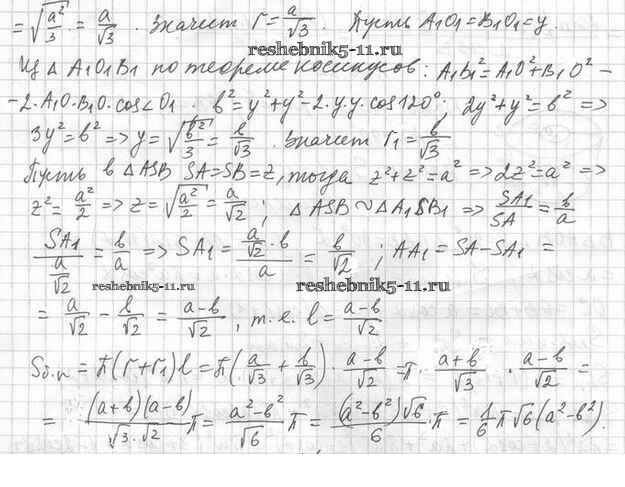 = √(a²/3) = a/√3 . Значит r = a/√3 . Пусть A₁O₁ = B₁O₁ = y.
reshebnik5-11.ru
Из Δ A₁O₁B₁ по теореме косинусов: A₁b₁² = A₁O² + B₁O² –
– 2·A₁O·B₁O·cos∠O₁ . b² = y² + y² – 2·y·y·cos120°; 2y² + y² = b² =>
3y² = b² => y = √(b²/3) = b/√3 . Значит r₁ = b/√3
Пусть в Δ ASB SA = SB = z, тогда z² + z² = a² => 2z² = a² =>
z² = a²/2 => z = √(a²/2) = a/√2 ; Δ ASB ~ Δ A₁SB₁ => SA₁/SA = b/a
SA₁/(a/√2) = b/a => SA₁ = (a/√2 · b)/a = b/√2 ; AA₁ = SA – SA₁ =
reshebnik5-11.ru reshebnik5-11.ru
= a/√2 – b/√2 = (a–b)/√2 , т.е. l = (a–b)/√2
Sб.п = π(r + r₁)l = π(a/√3 + b/√3) · (a–b)/√2 = π · (a+b)/√3 · (a–b)/√2 =
= (a+b)(a–b)/(√3·√2) π = (a²–b²)/√6 π = (a²–b²)√6/6 · π = 1/6 π√6(a²–b²).